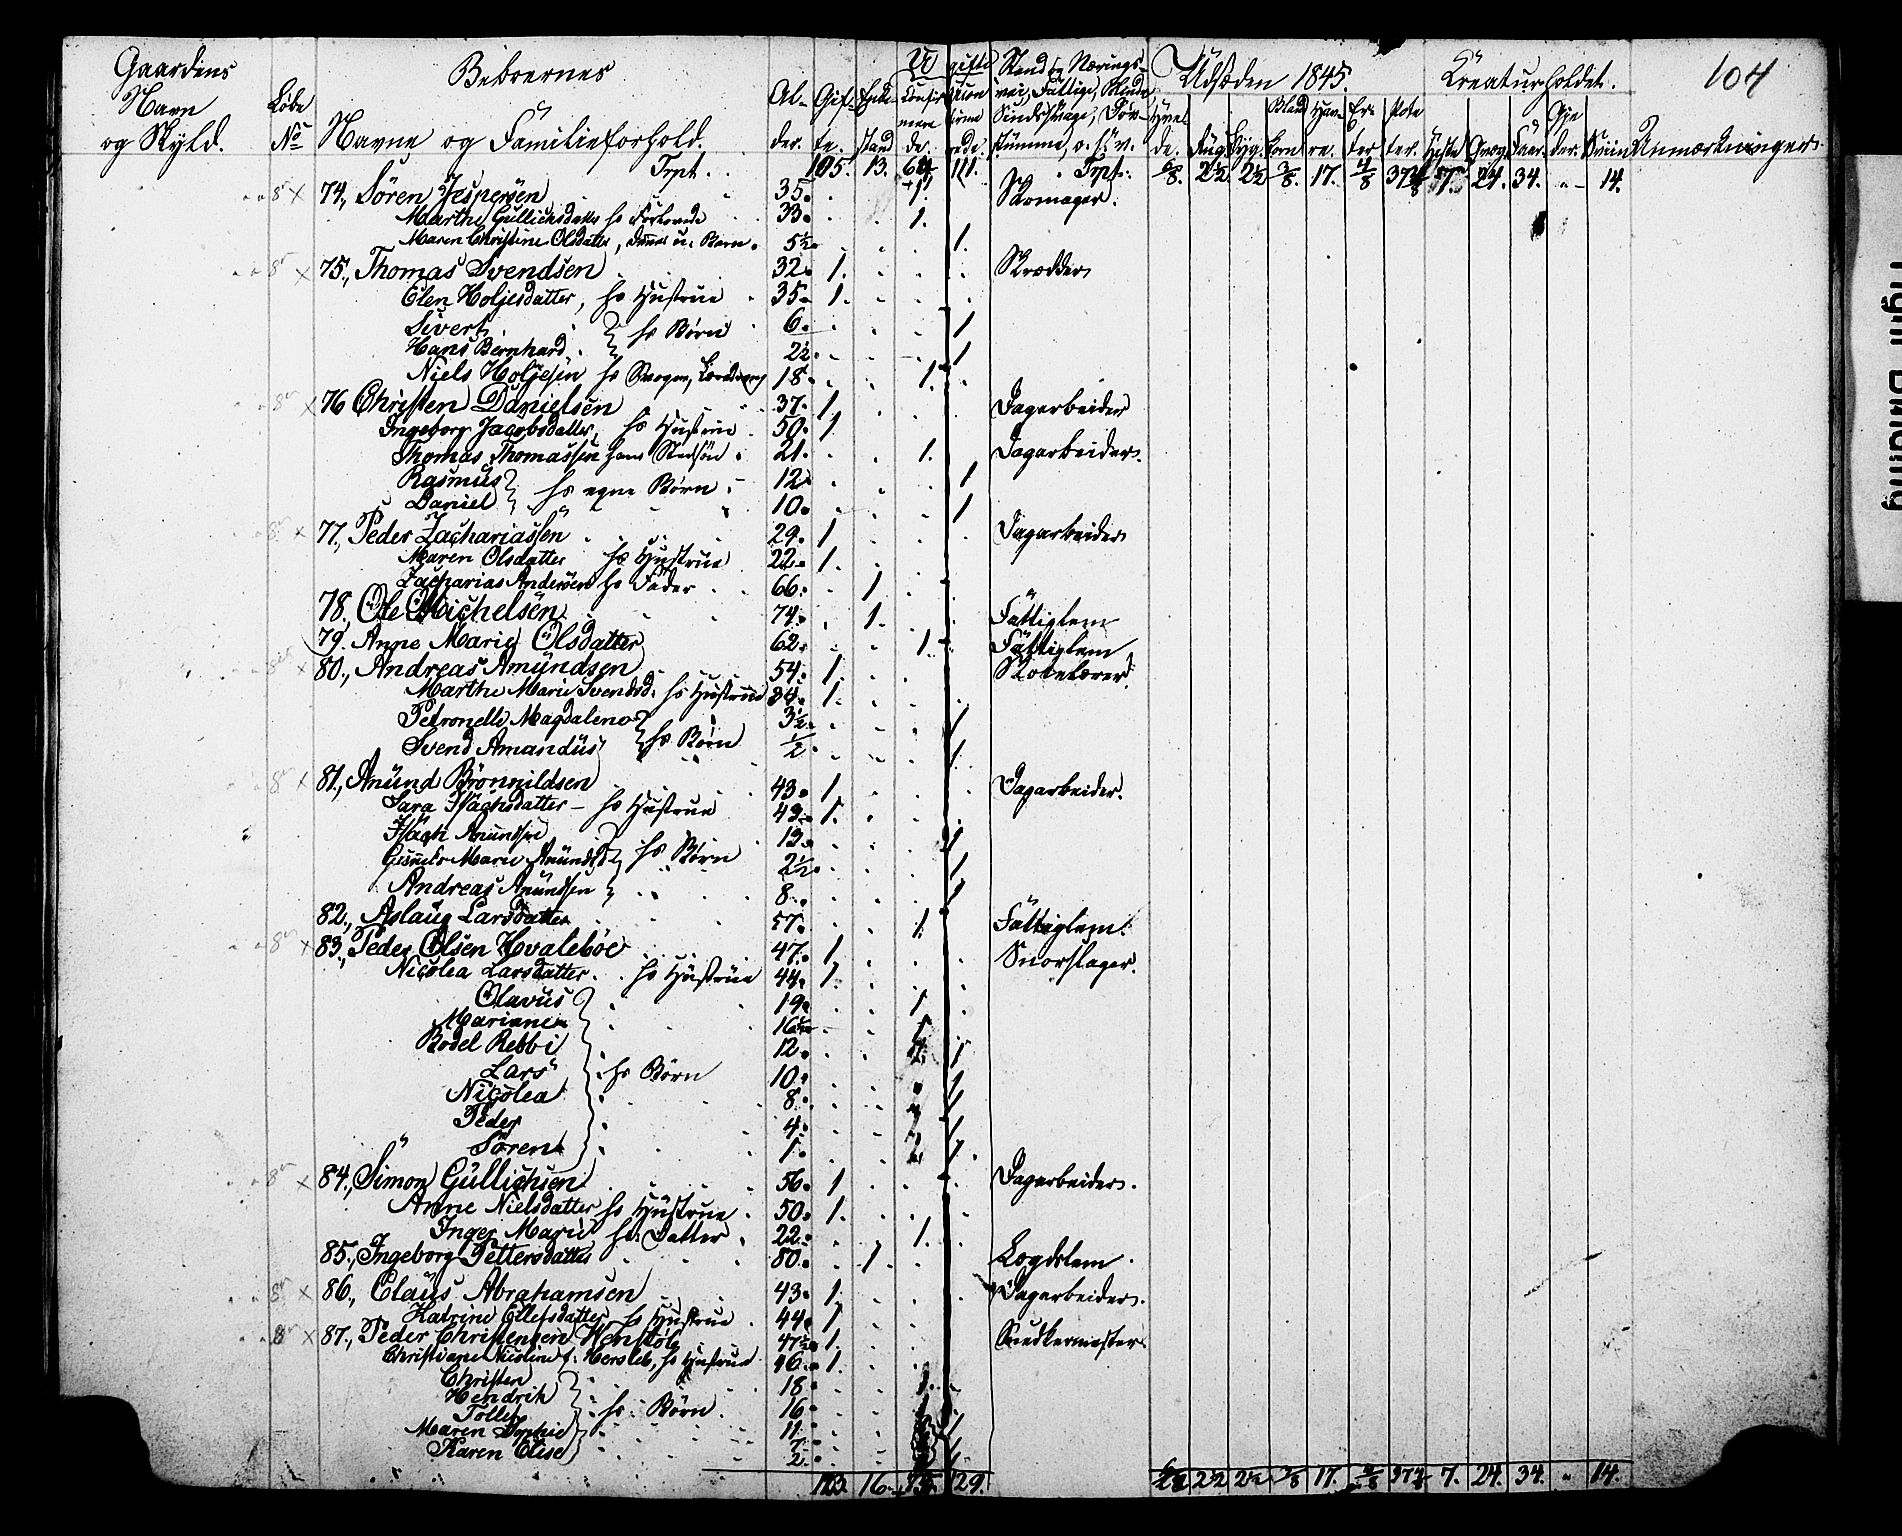 Gaardens Navn og Skyld. Løbe No Beboernes Navne og Familieforhold. Alder. Gifte. Enkestand Ugifte Konfirmerede. Ukonfirmerede. Stand og Næringsvei, Fattige, Blinde Sindssvage, Døvstumme, o. s. v. Udsæden 1845. Hvede. Rug Byg. Blandkorn Havre. Erter Poteter. Kreaturholdet. Heste Qvæg Faar. Gjeder. Sviin Anmærkninger. 104
Trpt. 105. 13. 64 111. Trpt. 6/8. 2½ 2½ 3/8. 17. 4/8 37¼ 7. 24. 34. - 14.
8 x 74., Søren Jespersen 35. 1. Skomager.
Marthe Gullichsdatter hs Forlovede 33. 1.
Maren Christine Olsdatter, Børn. 5½ 1.
8 x 75., Thomas Svendsen 32. 1. Skrædder
Elen Holjesdatter, hs Hustrue 35. 1.
Sivert } hs Børn 6. 1
Hans Bernhard } 2½ 1
Niels Holjesen hs Svoger, 18. 1.
8 x 76 Christen Danielsen 37. 1. Dagarbeider
Ingeborg Jacobsdatter, hs Hustrue 50. 1
Thomas Thomassen hans Stedsøn 21. 1. Dagarbeider.
Rasmus } hs egne Børn 12 1
Daniel } 10. 1
8 x 77., Peder Zachariassen 29. 1 Dagarbeider
Maren Olsdatter hs Hustrue 22. 1.
Zacharias Andersen hs Fader 66. 1
78. Ole Michelsen 74. 1. Fattiglem
79. Anne Marie Olsdatter 62. 1. Fattiglem
x 80., Andreas Amundsen 54. 1. Skolelærer.
Marthe Marie Svendsd. hs Hustrue 34. 1.
Petronelle Magdalena } hs Børn 3½ 1
Svend Amandus } ½ 1.
8 x 81., Anund Brønnildsen 43. 1. Dagarbeider.
Sara Isachsdatter - hs Hustrue 42. 1.
Isach Anundsen } hs Børn 12. 1
Marie Anundsd } 2½ 1
Andreas Anundsen } 8. 1
82., Aslaug Larsdatter 57. 1. Fattiglem.
8 x 83., Peder Olsen Hvalebøe 47. 1 Snorslager.
Nicolea Larsdatter. hs Hustrue 44. 1.
Olavus } 19. 1.
Mariane 16 1
Bodel Rebbi 12. 1
Lars } hs Børn 10. 1
Nicolea 8. 1
Peder 4. 1
Søren } 1. 1.
8 x 84., Simon Gullichsen 56. 1 Dagarbeider.
Anne Nielsdatter hs Hustrue 50. 1.
Inger Marie hs: Datter 22. 1.
85., Ingeborg Pettersdatter 80. 1 Lægdslem
8 x 86., Claus Abrahamsen 43. 1. Dagarbeider.
Katrine Ellefsdatter, hs Hustrue 44. 1
8 x 87., Peder Christensen Wenstøb 47 1. Snedkermester
Christiane Nicoline f. Hersleb, hs Hustrue 46. 1.
Christen } 18 1.
Hendrik 16. 1
Tollef } hs: Børn 11 1
Maren Sophie 7. 1
Karen Elise } 2. 1
123. 16. 75. 129. 6/8 2½ 2½ 3/8 17. 4/8 37¼ 7. 24. 34. - 14.